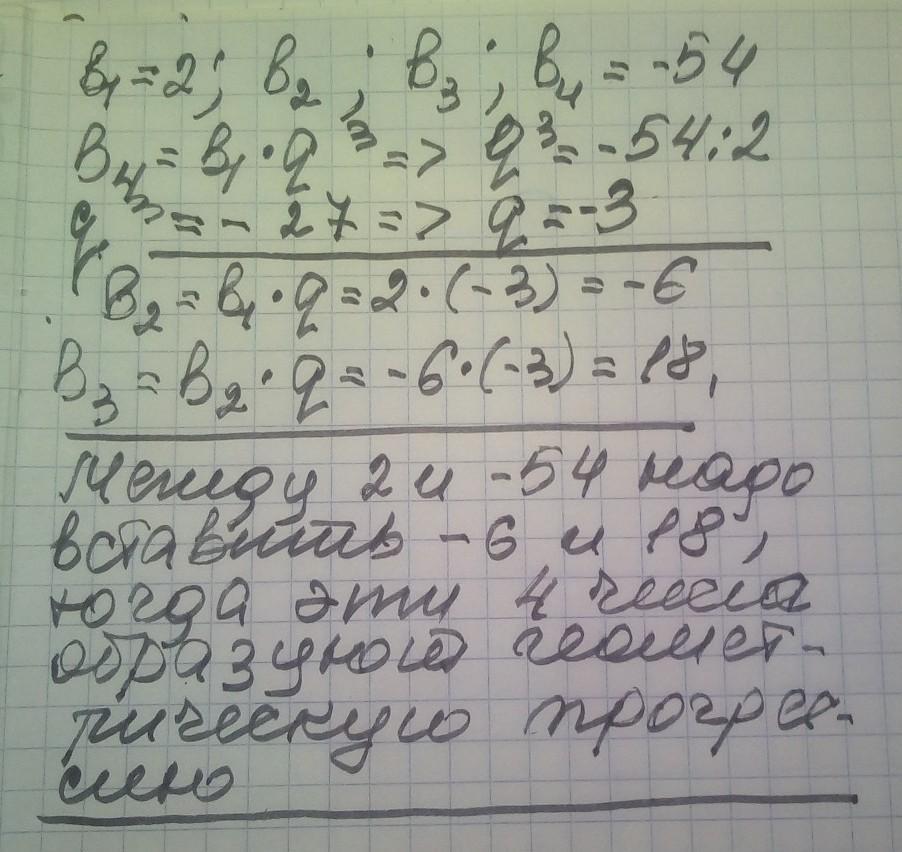 в₁ = 2; в₂; в₃; в₄ = -54
в₄ = в₁ · q³ => q³ = -54 : 2
q³ = - 27 => q = -3
в₂ = в₁ · q = 2 · (-3) = -6
в₃ = в₂ · q = -6 · (-3) = 18,
Между 2 и -54 надо
вставить -6 и 18,
тогда эти 4 числа
образуют геомет-
рическую прогрес-
сию